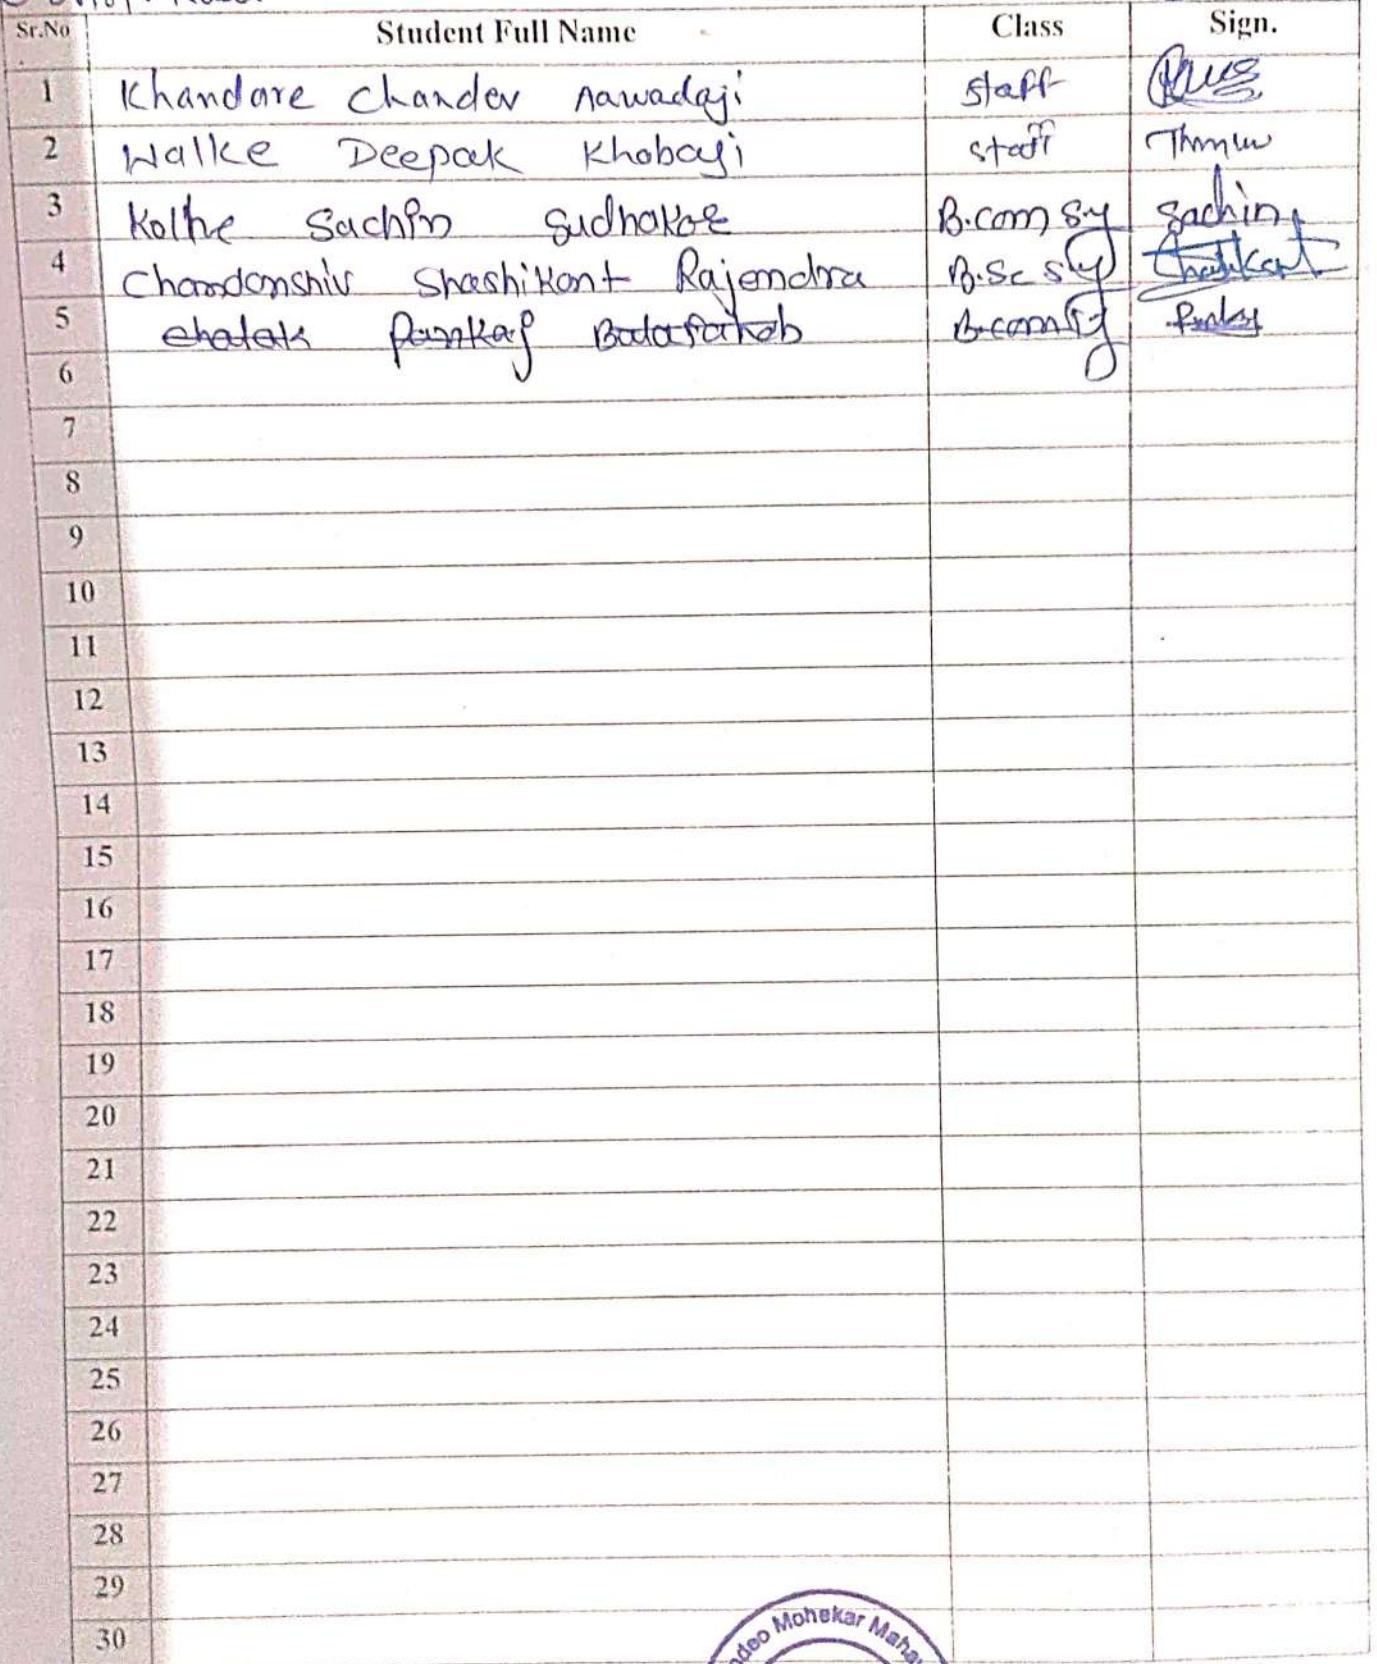 Sr.No Student Full Name Class Sign.
1 Khandare Chander nawadaji staff
2 Walke Deepak Khobaji staff
3 Kolhe Sachin Sudhakar B.com S.y Sachin
4 Chandanshiv Shashikant Rajendra B.Sc Sy
5 Pankaj B.com
6
7
8
9
10
11
12
13
14
15
16
17
18
19
20
21
22
23
24
25
26
27
28
29
30
deo Mohekar Maha